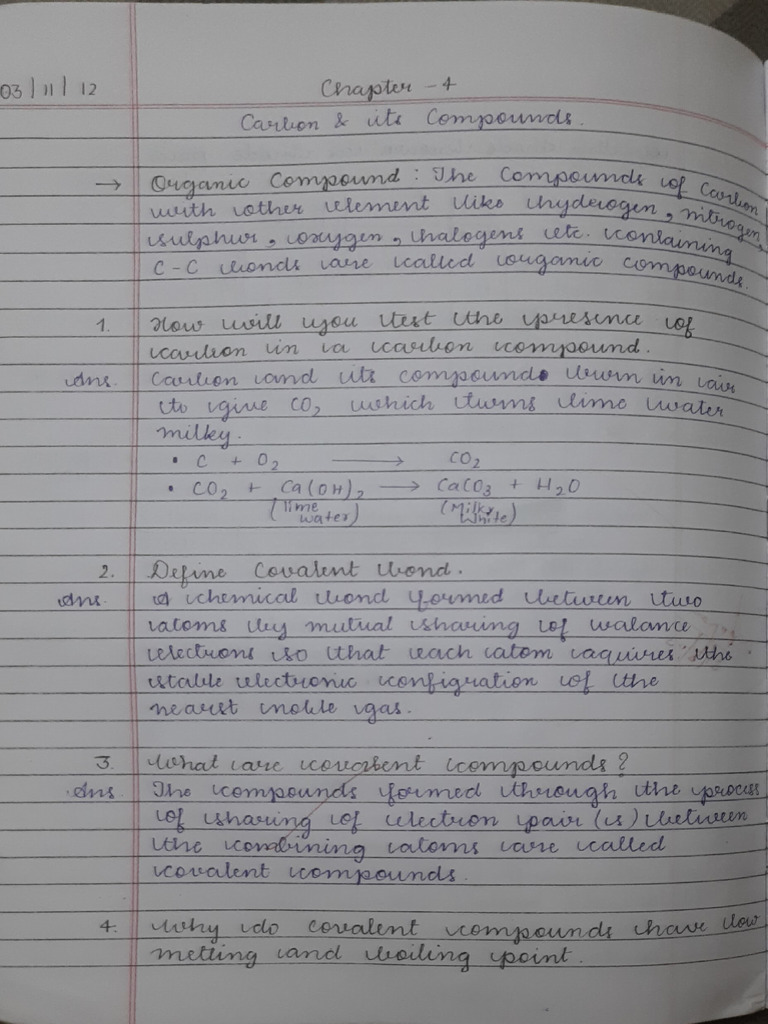 03/11/12 Chapter - 4
Carbon & its Compounds.
→ Organic Compound : The Compounds of Carbon
with other element like hyderogen, nitrogen,
sulphur, oxygen, halogens etc. containing
C-C bonds are called organic compounds.
1. How will you test the presence of
carbon in a carbon compound.
Ans. Carbon and its compounds burn in air
to give CO₂ which turns lime water
milky.
• C + O₂ → CO₂
• CO₂ + Ca(OH)₂ → CaCO₃ + H₂O
(lime water) (Milky White)
2. Define Covalent bond.
Ans. A chemical bond formed between two
atoms by mutual sharing of walance
electrons so that each atom aquires the
stable electronic configration of the
nearest noble gas.
3. What are covalent compounds?
Ans. The compounds formed through the process
of sharing of electron pair (s) between
the combining atoms are called
covalent compounds.
4. Why do covalent compounds have low
melting and boiling point.